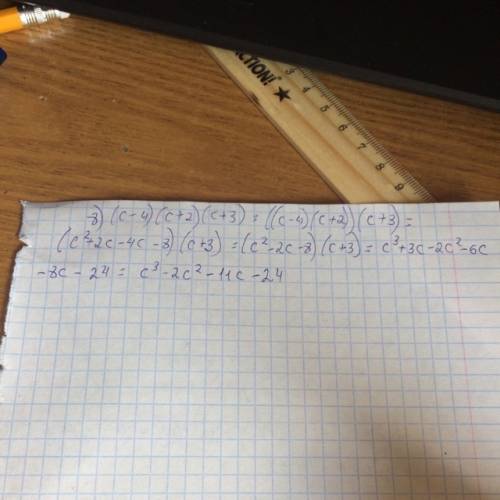 ACTION! ★
3 4 5 6 7 8 9
8) (c-4)(c+2)(c+3) = ((c-4)(c+2))(c+3) =
(c²+2c-4c-8)(c+3) = (c²-2c-8)(c+3) = c³+3c-2c²-6c
-8c-24 = c³-2c²-11c-24